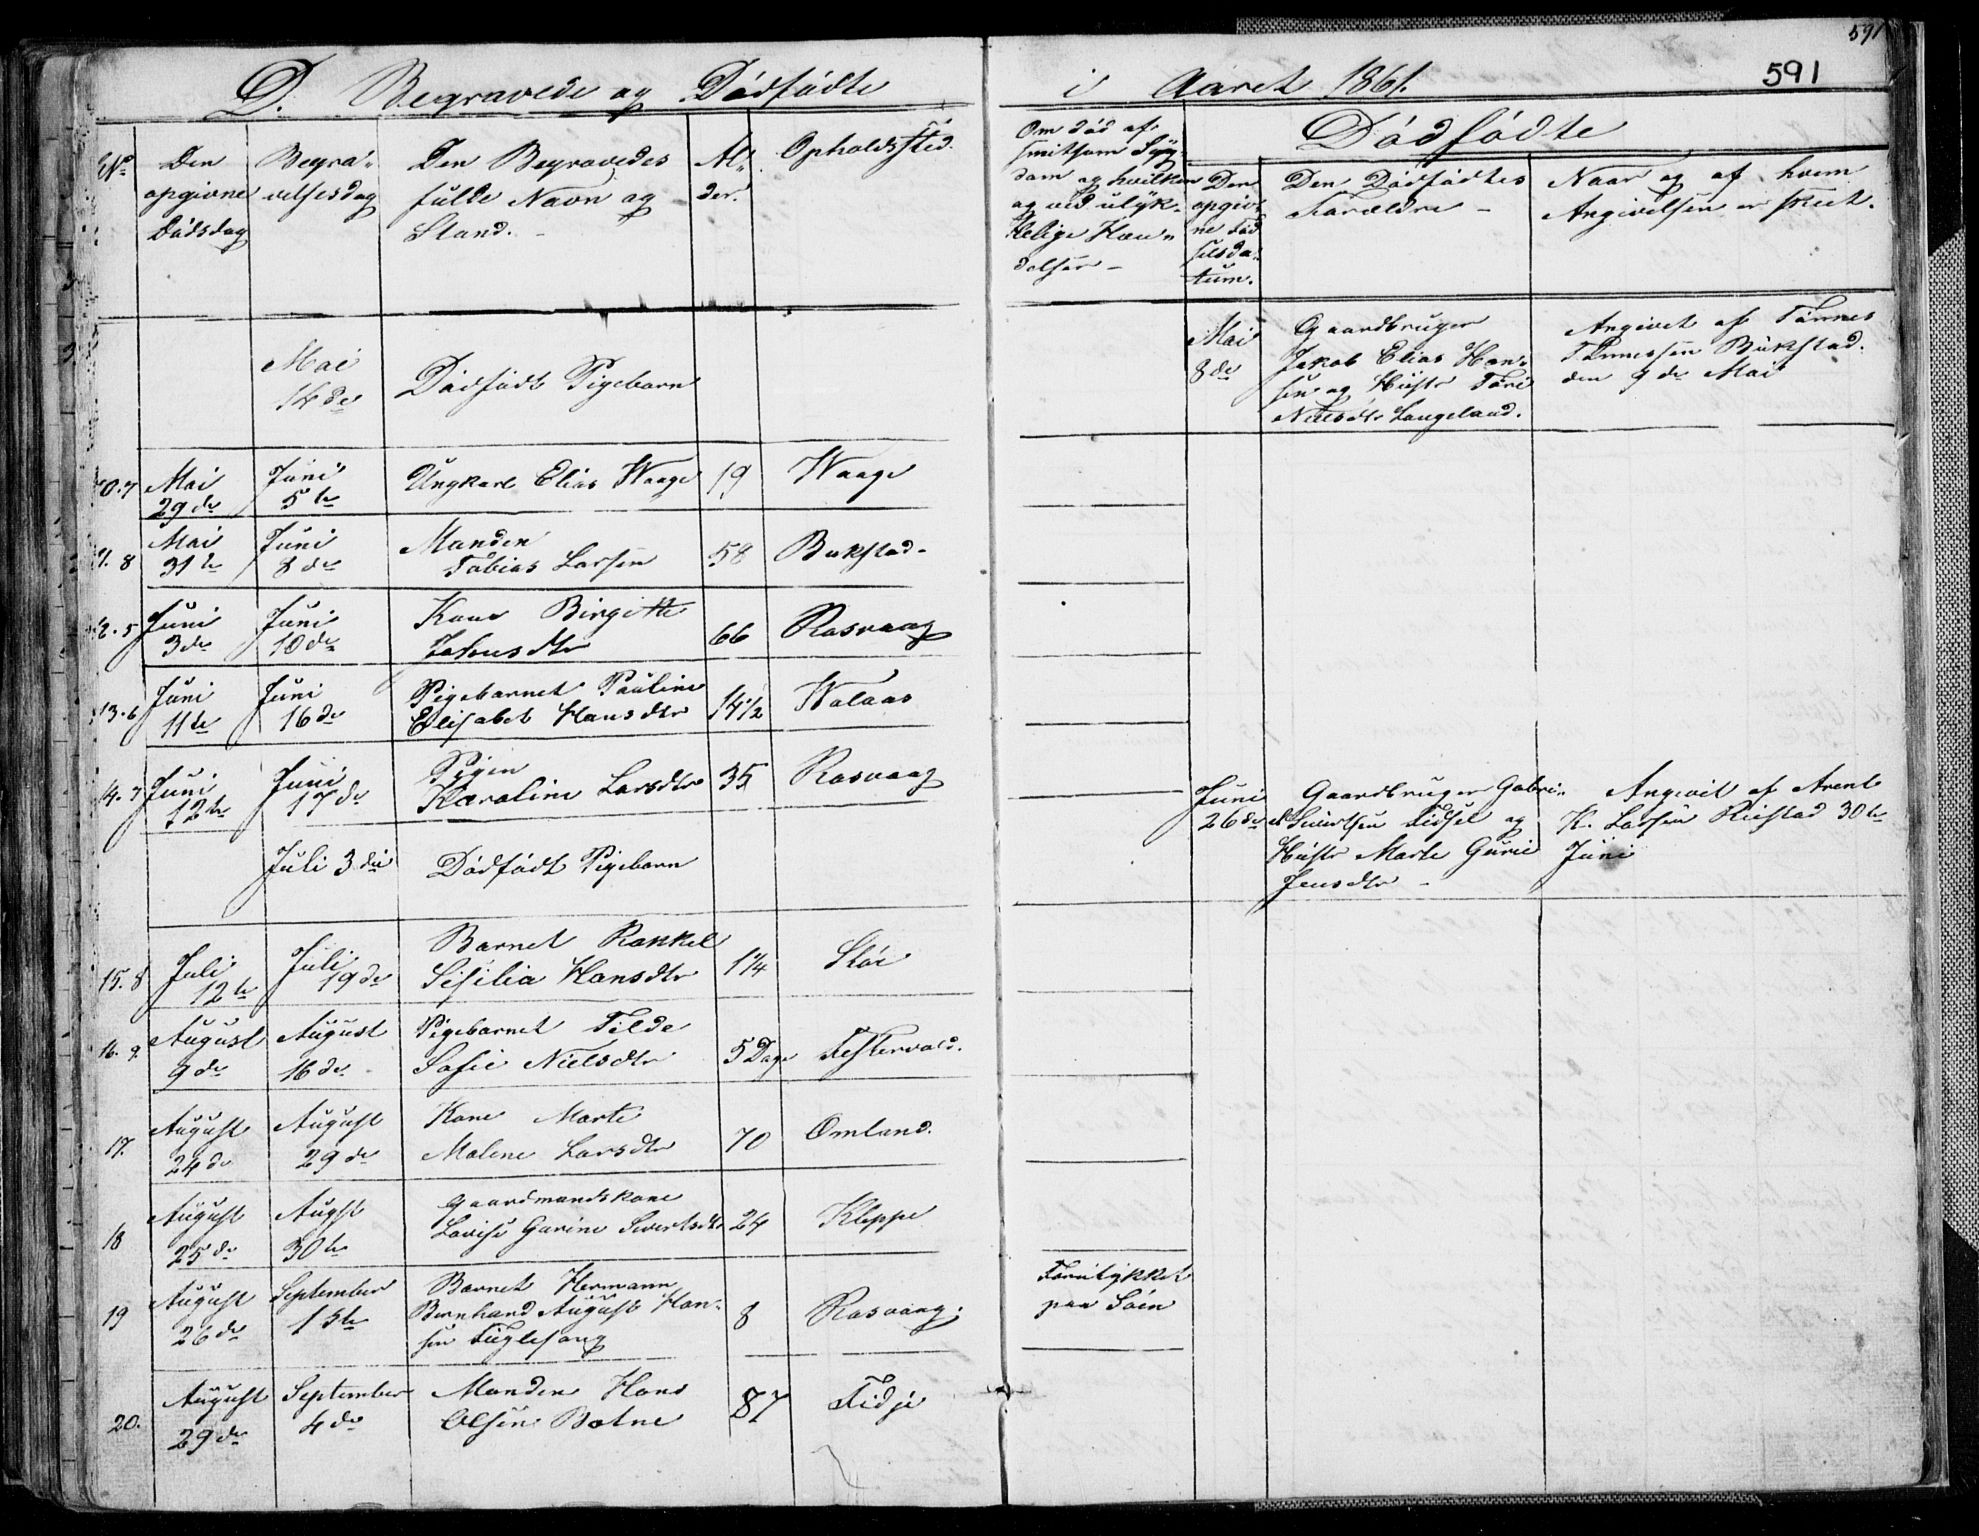 591
D. Begravede og Dødfødte i Aaret 1861.
591
No
Den
opgivne
Dödsdag
Begra-
velsesdag
Den Begravedes
fulde Navn og
Stand.
Al-
der.
Opholdssted.
Om död af
smitsom Syg-
dom og hvilken
og ved ulyk-
kelige Hæn-
delser -
Dödfödte
Den
opgiv-
ne Föd
selsda-
tum.
Den Dödfödtes
Forældre -
Naar og af hvem
Angivelsen er skeet.
Mai
14de
Dödfödt Pigebarn
Mai
8de
Gaardbruger
Jakob Elias Han-
sen og Hustr Tori
Nielsdtr Langeland.
Angivet af Tönnes
Tönnessen Bukstad.
den 9de Mai
10. 7
Mai
29de
Juni
5te
Ungkarl Elias Waage
19
Waage
11. 8
Mai
31te
Juni
8de
Manden
Tobias Larsen
58
Bukstad-
12. 5
Juni
3de
Juni
10de
Kone Birgitte
Jahnsdtr
66
Rasvaag
13. 6
Juni
11te
Juni
16de
Pigebarnet Pauline
Elisabet Hansdtr
14½
Walaas
14. 7
Juni
12te
Juni
17de
Pigen
Karoline Larsdtr
35
Rasvaag
Juli 3die
Dödfödt Pigebarn
Juni
26de
Gaardbruger Gabri-
el Sivertsen Fidsel og
Hustr Marte Gurie
Jensdtr -
Angivet af Arent
K. Larsen Riestad 30te
Juni
15. 8
Juli
12te
Juli
19de
Barnet Rankel
Sisilia Hansdtr
1¼
Stöe
16. 9.
August
9de
August
16de
Pigebarnet Tilde
Sofie Nielsdtr
5 Dage
Festervold.
17.
August
24de
August
29de
Kone Marte
Malene Larsdtr
70
Omland.
18
August
25de
Augst
30te
Gaardmandskone
Lovise Garine Sivertsdtr
24
Kleppe
19
August
26de
September
1ste
Barnet Hermann
Bernhard August Han-
sen Fuglesang
8
Rasvaag.
Forulykket
paa Söen
20.
August
29de
September
4de
Manden Hans
Olsen Botne
87
Fidje